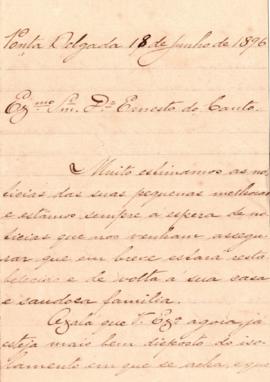 Ponta Delgada 18 de Junho de 1896
Ex.mo Snr. Dr. Ernesto do Canto.
Muito estimamos as no-
ticias das suas pequenas melhoras
e estamos sempre a espera de no-
ticias que nos venham assegu-
rar que em breve estará resta-
belecido e de volta á sua casa
e saudosa familia.
Oxalá que V. Ex.ª agora já
esteja mais bem disposto do iso-
lamento em que se acha, e que